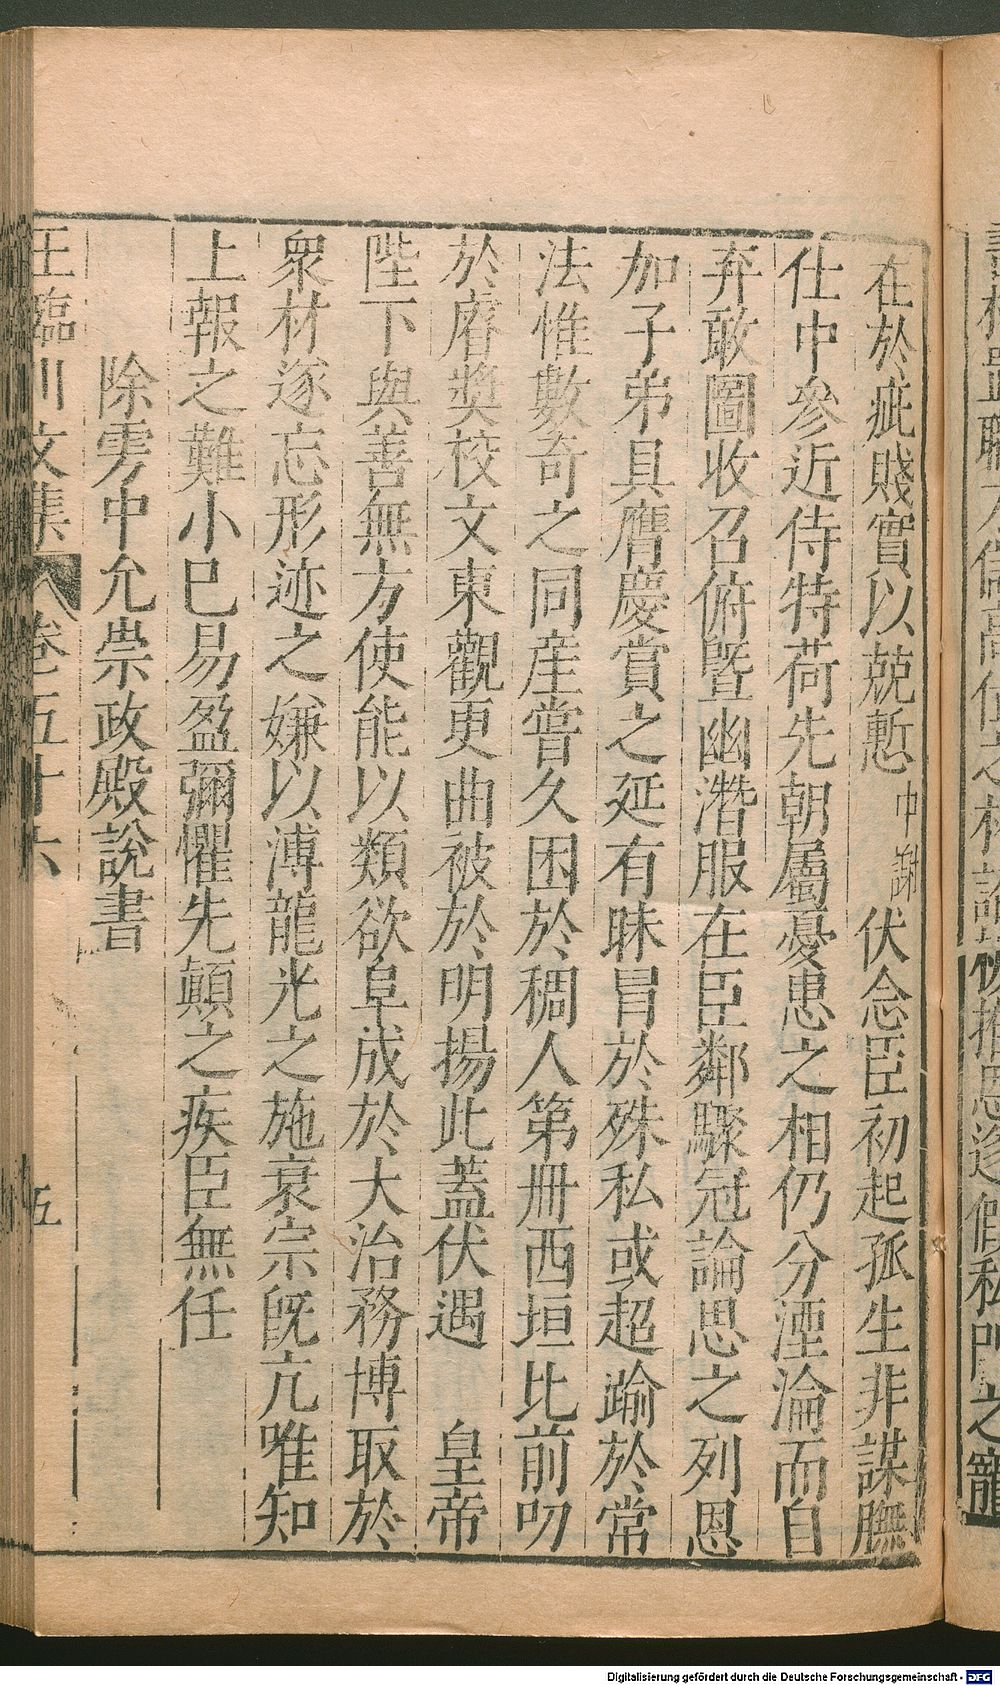 在於疵賤實以兢慙中謝伏念臣初起孤生非謀膴
仕中參近侍特荷先朝屬憂患之相仍分湮淪而自
弃敢圖收召俯曁幽潛服在臣鄰驟冠論思之列恩
加子弟具膺慶賞之延有昧冒於殊私或超踰於常
法惟數奇之同産嘗久困於稠人第冊西垣比前叨
於㢞奬校文東觀更曲被於明揚此蓋伏遇　皇帝
陛下與善無方使能以類欲阜成於大治務博取於
衆材遂忘形迹之嫌以溥龍光之施衰宗旣亢唯知
上報之難小已易盈彌懼先顛之疾臣無任
除雱中允崇政殿說書
王臨川文集　卷五十六　五
Digitalisierung gefördert durch die Deutsche Forschungsgemeinschaft - DFG